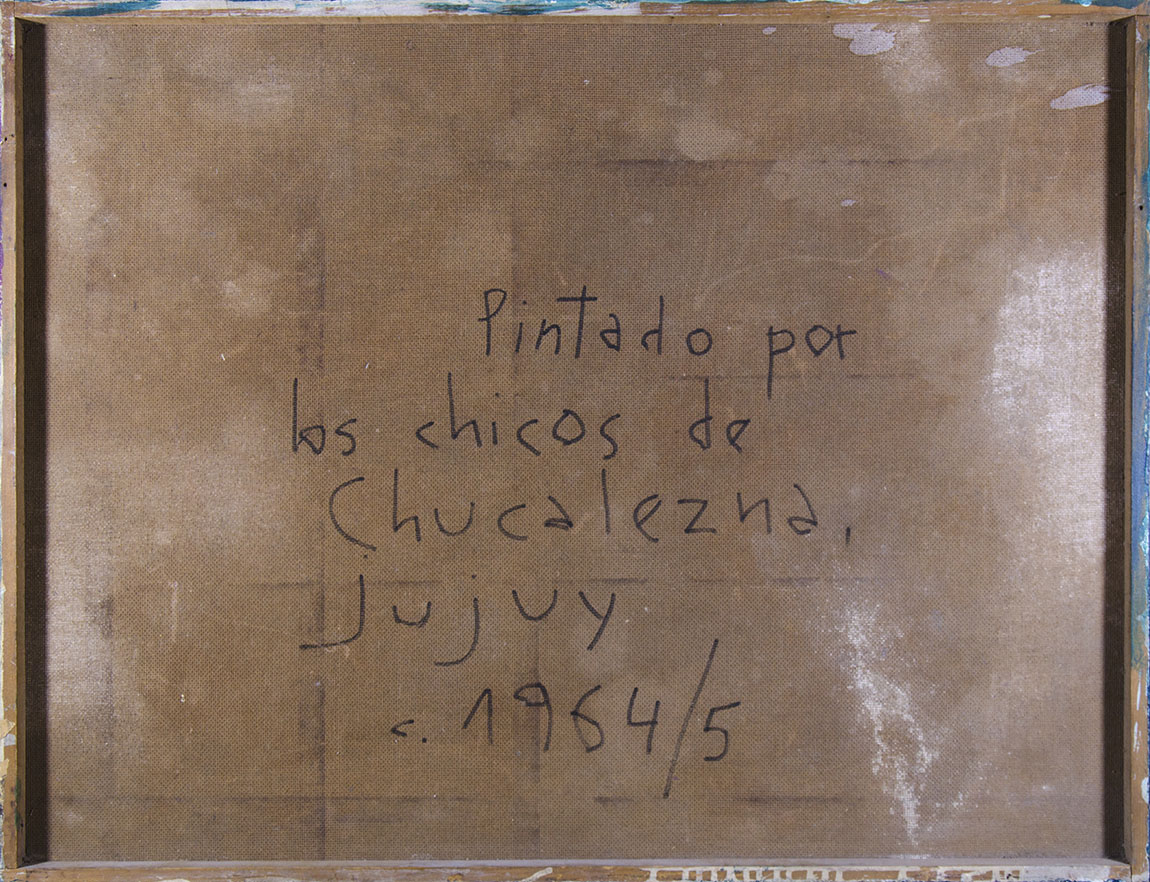 Pintado por
los chicos de
Chucalezna,
Jujuy
c. 1964/5